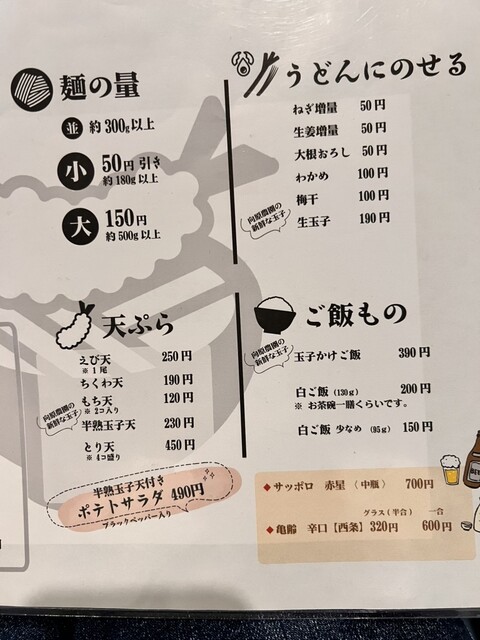 麺の量
並 約300g以上
小 50円引き
約180g以上
大 150円
約500g以上
うどんにのせる
ねぎ増量 50円
生姜増量 50円
大根おろし 50円
わかめ 100円
梅干 100円
向原農園の
新鮮な玉子
生玉子 190円
天ぷら
えび天 250円
※1尾
ちくわ天 190円
もち天 120円
※2つ入り
向原農園の
新鮮な玉子
半熟玉子天 230円
とり天 450円
※4コ盛り
半熟玉子天付き
ポテトサラダ 490円
ブラックペッパー入り
ご飯もの
向原農園の
新鮮な玉子
玉子かけご飯 390円
白ご飯 (130g) 200円
※ お茶碗一膳くらいです。
白ご飯 少なめ (95g) 150円
◆サッポロ 赤星 〈中瓶〉 700円
グラス(半合) 一合
◆亀齢 辛口【西条】320円 600円